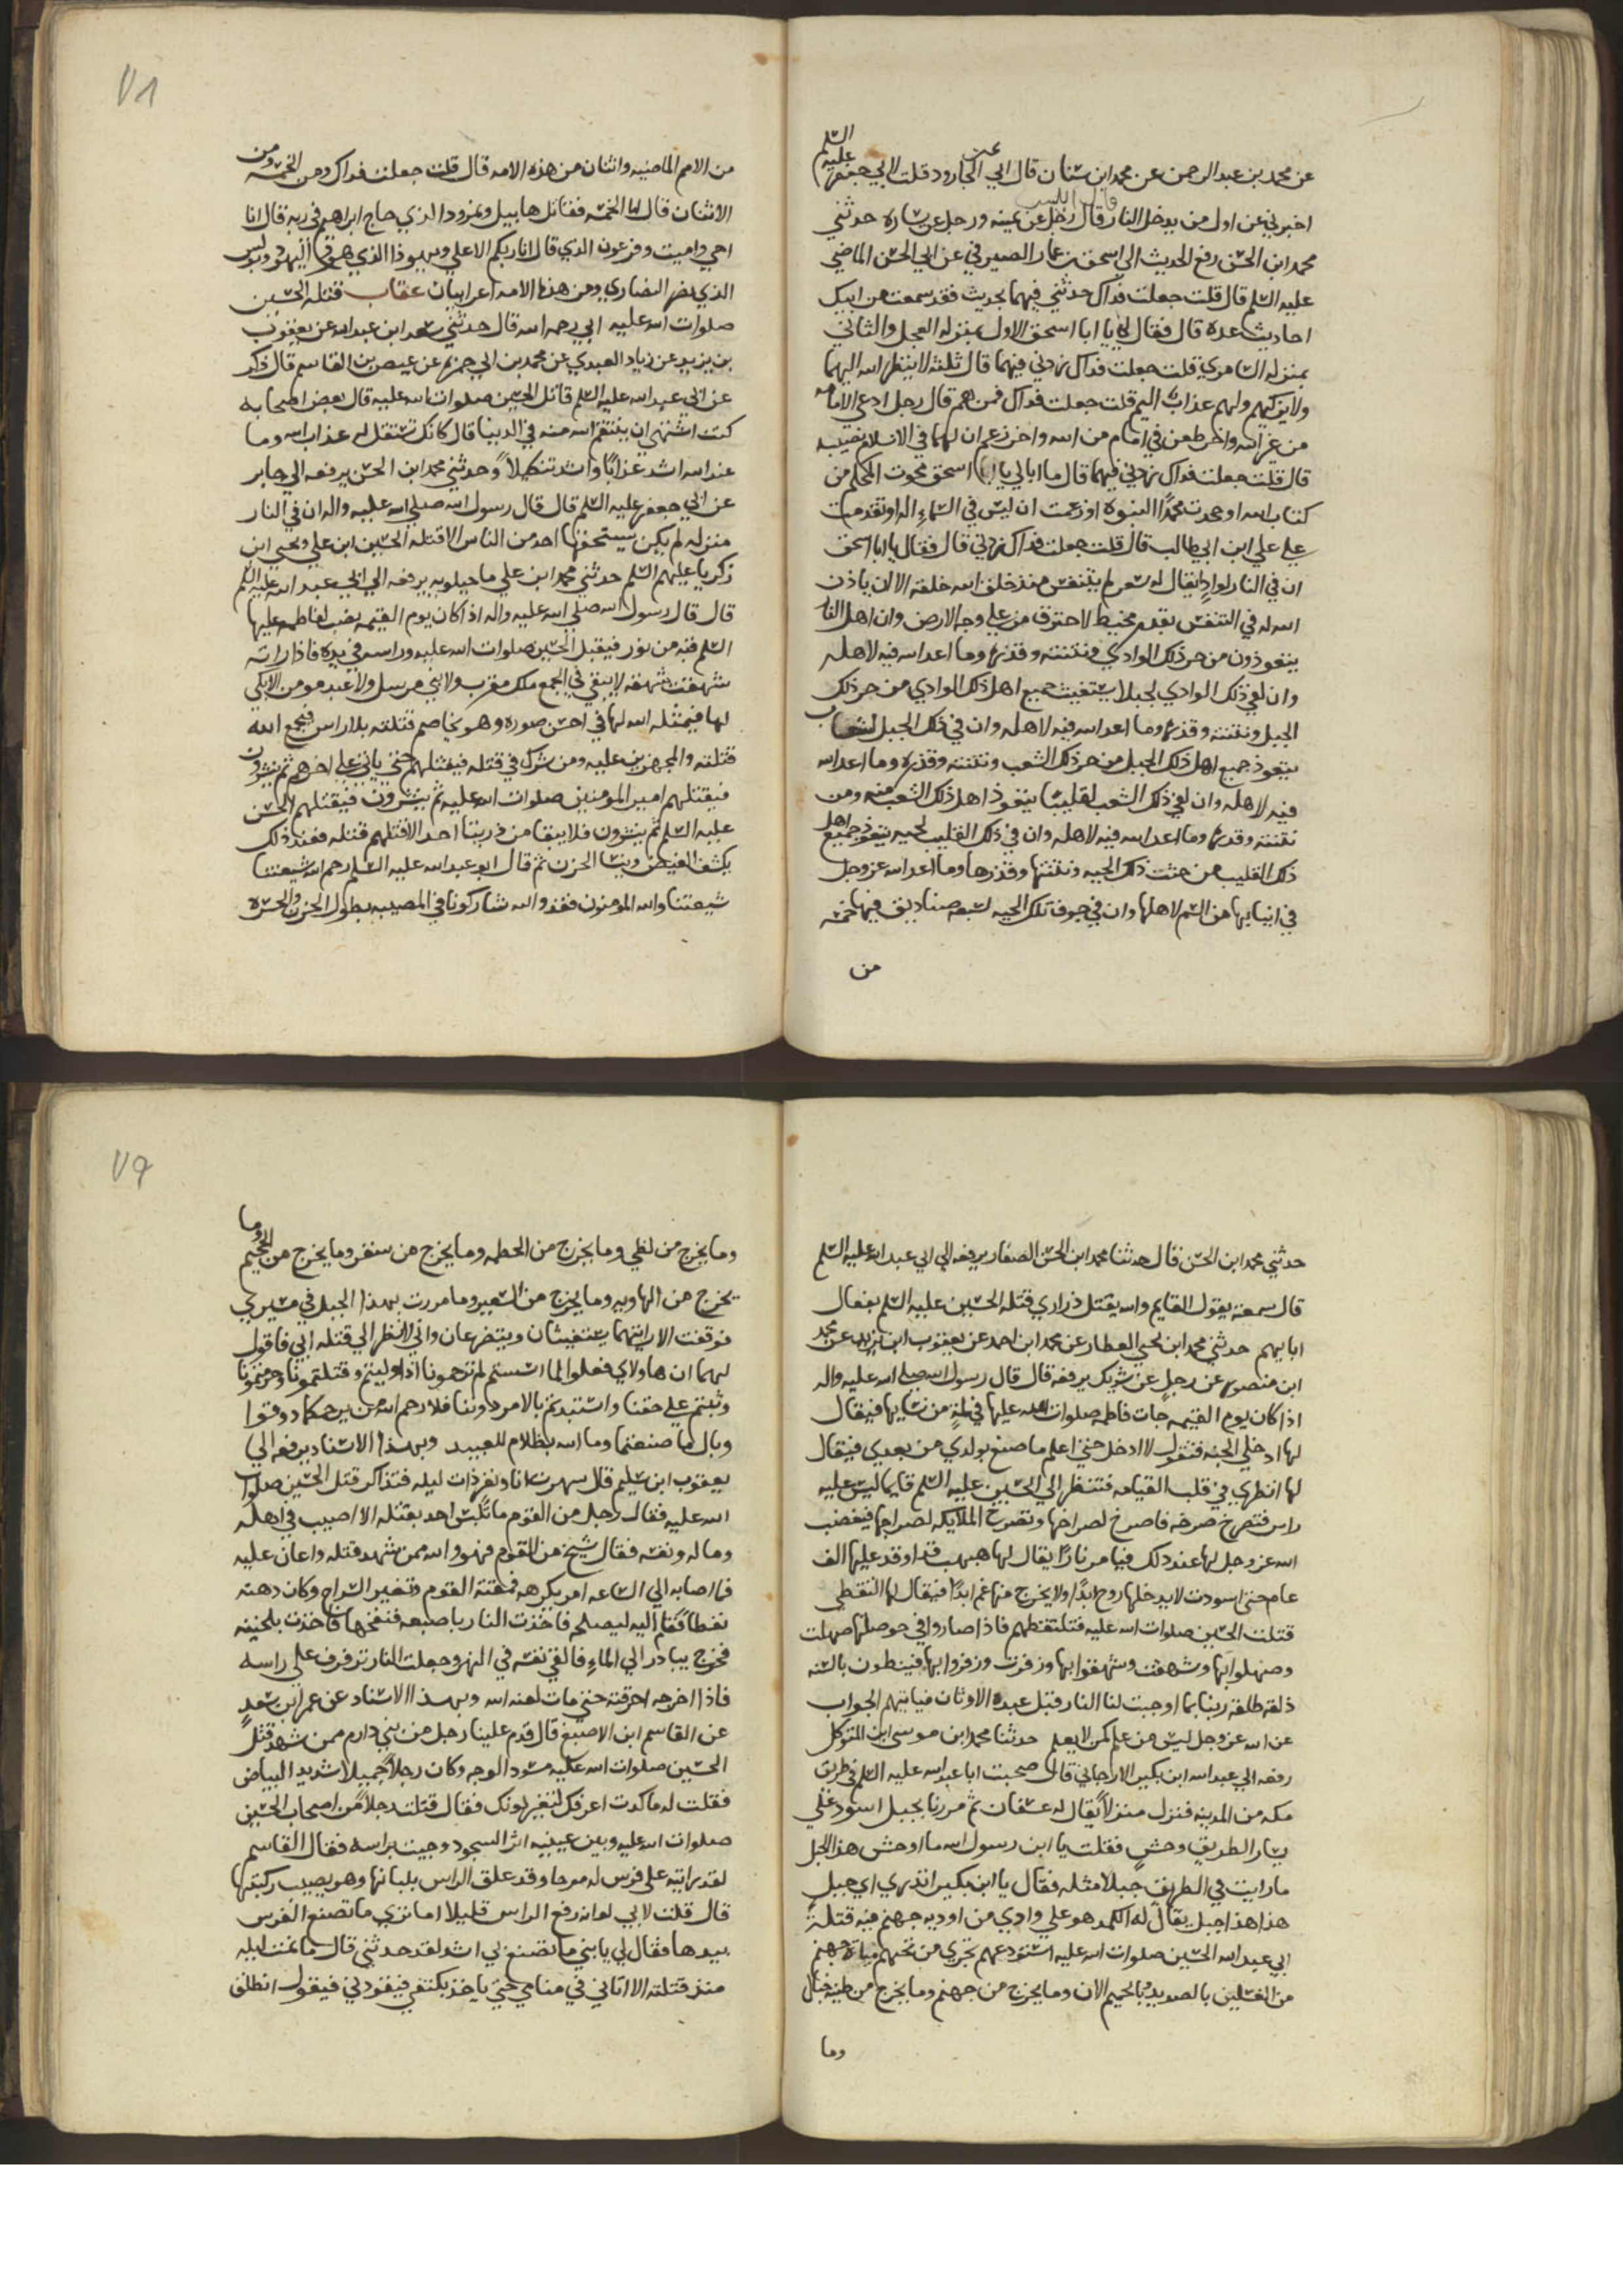 عن محمد بن عبد الرحمن عن محمد ابن سنان قال ابي الجارود قلت لابي جعفر عليه السلم
اخبرني عن اول من يدخل النار قال رجل عن يمينه ورجل عن يساره حدثني
محمد ابن الحسن رفع الحديث الي اسحق بن عمار الصيرفي عن ابي الحسن الماضي
عليه السلم قال قلت جعلت فداك حدثني فيهما بحديث فقد سمعت من ابيك
احاديث عده قال فقال لي يا ابا اسحق الاول بمنزله العجل والثاني
بمنزله السامري قلت جعلت فداك زدني فيهما قال ثلثه لا ينظر الله اليهم
ولا يزكيهم ولهم عذاب اليم قلت جعلت فداك فمن هم قال رجل ادعي الامامه
من غير الله واخر طعن في امام من الله واخر زعم ان لهما في الاسلام نصيب
قال قلت جعلت فداك زدني فيهما قال ما ابالي يا اسحق محوت المحكم من
كتاب الله او جحدت محمدا النبوه او زعمت ان ليس في السماء اله او تقدمت
علي علي ابن ابي طالب قال قلت جعلت فداك زدني قال فقال يا ابا اسحق
ان في النار لواد يقال له سقر لم يتنفس منذ خلق الله خلقه الا لان ياذن
الله له في التنفس بقدر مخيط لاحترق من علي وجه الارض وان اهل النار
يتعوذون من حر ذلك الوادي ونتنه وقذره وما اعد الله فيه لاهله
وان لفي ذلك الوادي لجبلا يستغيث جميع اهل ذلك الوادي من حر ذلك
الجبل ونتنه وقذره وما اعد الله فيه لاهله وان في ذلك الجبل لشعاب
يتعوذ جميع اهل ذلك الجبل من حر ذلك الشعب ونتنه وقذره وما اعد الله
فيه لاهله وان لفي ذلك الشعب لقليبا يتعوذ اهل ذلك الشعب منه ومن
نتنه وقذره وما اعد الله فيه لاهله وان في ذلك القليب لحيه يتعوذ جميع اهل
ذلك القليب من خبث ذلك الحيه ونتنها وقذرها وما اعد الله عز وجل
في انيابها من السم لاهلها وان في جوف تلك الحيه لسبعه صناديق فيها خمسه
من
٧٨
من الامم الماضيه واثنان من هذه الامه قال قلت جعلت فداك ومن الخمسه ومن
الاثنان قال اما الخمسه فقاتل هابيل ونمرود الذي حاج ابراهيم في ربه قال انا
احي واميت وفرعون الذي قال انا ربكم الاعلي ويهوذا الذي هود اليهود وبولس
الذي نصر النصاري ومن هذه الامه اعرابيان عقاب قتله الحسين
صلوات الله عليه ابي رحمه الله قال حدثني سعد ابن عبد الله عن يعقوب
بن يزيد عن زياد العبدي عن محمد بن ابي حمزه عن عيص بن القاسم قال ذكر
عن ابي عبد الله عليه السلم قاتل الحسين صلوات الله عليه قال بعض اصحابه
كنت اشتهي ان ينتقم الله منه في الدنيا قال كانك تستقل له عذاب الله وما
عند الله اشد عذابا واشد تنكيلا وحدثني محمد ابن الحسن يرفعه الي جابر
عن ابي جعفر عليه السلم قال قال رسول الله صلي الله عليه واله ان في النار
منزله لم يكن يستحقها احد من الناس الا قتله الحسين ابن علي ويحيي ابن
زكريا عليهم السلم حدثني محمد ابن علي ماجيلويه يرفعه الي ابي عبد الله عليه السلم
قال قال رسول الله صلي الله عليه واله اذا كان يوم القيمه نصب لفاطمه عليها
السلم قبه من نور فيقبل الحسين صلوات الله عليه وراسه في يده فاذا راته
شهقت شهقه لا يبقي في الجمع ملك مقرب ولا نبي مرسل ولا عبد مومن الا بكي
لها فيمثله الله لها في احسن صوره وهو يخاصم قتلته بلا راس فيجمع الله
قتلته والمجهزين عليه ومن شرك في قتله فيقتلهم حتي ياتي علي اخرهم ثم ينشرون
فيقتلهم امير المومنين صلوات الله عليه ثم ينشرون فيقتلهم الحسن
عليه السلم ثم ينشرون فلا يبقا من ذريتنا احد الا قتلهم قتله فعند ذلك
يكشف الغيض وينسا الحزن ثم قال ابو عبد الله عليه السلم رحم الله شيعتنا
شيعتنا والله المومنون فقد والله شاركونا في المصيبه بطول الحزن والحسره
حدثني محمد ابن الحسن قال حدثنا محمد ابن الحسن الصفار يرفعه الي ابي عبد الله عليه السلم
قال سمعته يقول القايم والله يقتل ذراري قتله الحسين عليه السلم بفعال
ابايهم حدثني محمد ابن يحيي العطار عن محمد ابن احمد عن يعقوب ابن يزيد عن محمد
ابن منصور عن رجل عن شريك يرفعه قال قال رسول الله صلي الله عليه واله
اذا كان يوم القيمه جات فاطمه صلوات الله عليها في لمة من نسايها فيقال
لها ادخلي الجنه فتقول لا ادخل حتي اعلم ما صنع بولدي من بعدي فيقال
لها انظري في قلب القيامه فتنظر الي الحسين عليه السلم قايما ليس عليه
راس فتصرخ صرخه فاصرخ لصراخها وتصرخ الملايكه لصراخها فيغضب
الله عز وجل لها عند ذلك فيامر نارا يقال لها هبهب قد اوقد عليها الف
عام حتي اسودت لا يدخلها روح ابدا ولا يخرج منها غم ابدا فيقال لها التقطي
قتلت الحسين صلوات الله عليه فتلتقطهم فاذا صاروا في حوصلتها صهلت
وصهلوا بها وشهقت وشهقوا بها وزفرت وزفروا بها فينطقون بالسنه
ذلقه طلقه ربنا بما اوجبت لنا النار قبل عبده الاوثان فياتيهم الجواب
عن الله عز وجل ليس من علم كمن لا يعلم حدثنا محمد ابن موسي ابن المتوكل
رفعه الي عبد الله ابن بكير الارجاني قال صحبت ابا عبد الله عليه السلم في طريق
مكه من المدينه فنزل منزلا يقال له عسفان ثم مررنا بجبل اسود علي
يسار الطريق وحش فقلت يا ابن رسول الله ما اوحش هذا الجبل
ما رايت في الطريق جبلا مثله فقال يا ابن بكير اتدري اي جبل
هذا هذا جبل يقال له الكمد هو علي وادي من اوديه جهنم فيه قتلة
ابي عبد الله الحسين صلوات الله عليه استودعهم تجري من تحتهم مياه جهنم
من الغسلين بالصديد والحميم الان وما يخرج من جهنم وما يخرج من طينة خبال
وما
٧٩
وما يخرج من لظي وما يخرج من الحطمه وما يخرج من سقر وما يخرج من الجحيم وما
يخرج من الهاويه وما يخرج من السعير وما مررت بهذا الجبل في مسيري
فوقفت الا رايتهما يستغيثان ويتضرعان واني لانظر الي قتله ابي فاقول
لهما ان هاولاي فعلوا لما اسستم لم ترحمونا اذ وليتم وقتلتمونا وحرمتمونا
وثبتم علي حقنا واستبدتم بالامر دوننا فلا رحم الله من يرحمكما ذوقوا
وبال ما صنعتما وما الله بظلام للعبيد وبهذا الاسناد يرفعه الي
يعقوب ابن سليم قال سهرت انا ونفر ذات ليله فتذاكر قتل الحسين صلوات
الله عليه فقال رجل من القوم ما تلبس احد بقتله الا اصيب في اهله
وماله ونفسه فقال شيخ من القوم فهو والله ممن شهد قتله واعان عليه
فما اصابه الي الساعه امر يكرهه فمقته القوم وتغير السراج وكان دهنه
نفطا فقام اليه ليصلحه فاخذت النار باصبعه فنفخها فاخذت بلحيته
فخرج يبادر الي الماء فالقي نفسه في النهر وجعلت النار ترفرف علي راسه
فاذا اخرجه احرقته حتي مات لعنه الله وبهذا الاسناد عن عمر ابن سعد
عن القاسم ابن الاصبغ قال قدم علينا رجل من بني دارم ممن شهد قتل
الحسين صلوات الله عليه مسود الوجه وكان رجلا جميلا شديد البياض
فقلت له ما كدت اعرفك لتغير لونك فقال قتلت رجلا من اصحاب الحسين
صلوات الله عليه وبين عينيه اثر السجود وجيت براسه فقال القاسم
لقد رايته علي فرس له مرحا وقد علق الراس بلبانها وهو يصيب ركبتها
قال قلت لابي لو انه رفع الراس قليلا اما تري ما تصنع الفرس
بيدها فقال لي يا بني ما تصنع لي اشد لقد حدثني قال ما نمت ليله
منذ قتلته الا اتاني في منامي حتي ياخذ بكتفي فيقودني فيقول انطلق